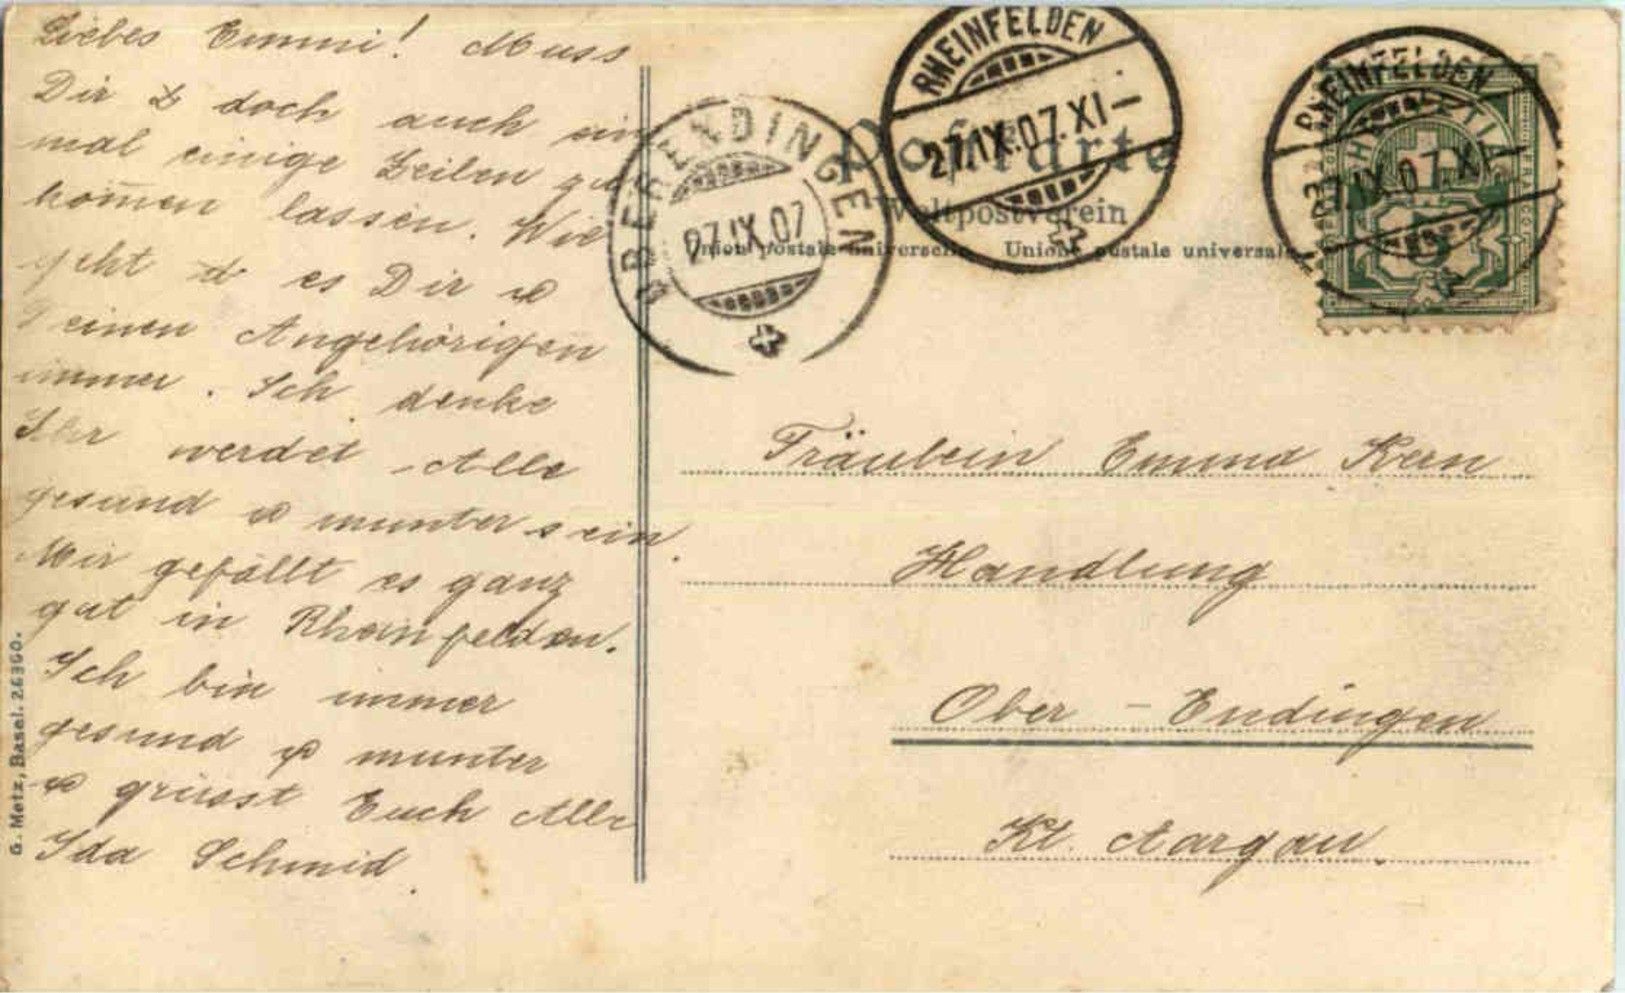 Liebes Emmi! Muss
Dir doch auch ein
mal einige Zeilen zu
kom̄en lassen. Wie
geht es Dir u
Deinen Angehörigen
immer. Ich denke
Ihr werdet Alle
gesund u munter sein.
Mir gefällt es ganz
gut in Rheinfelden.
Ich bin immer
gesund u munter
u grüsst Euch Alle
Ida Schmid.
G. Metz, Basel. 26360.
OBERENDINGEN
27.IX.07
RHEINFELDEN
27.IX.07.XI–
RHEINFELDEN
27.IX.07.XI
5
Postkarte
Weltpostverein
Union postale universelle. Unione postale universale.
Fräulein Emma Kern
Handlung
Ober-Endingen
Kt. Aargau.